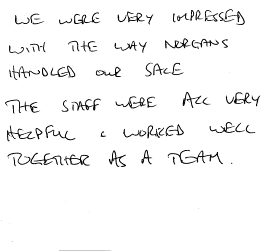 WE WERE VERY IMPRESSED
WITH THE WAY NORGANS
HANDLED OUR SALE
THE STAFF WERE ALL VERY
HELPFUL & WORKED WELL
TOGETHER AS A TEAM.